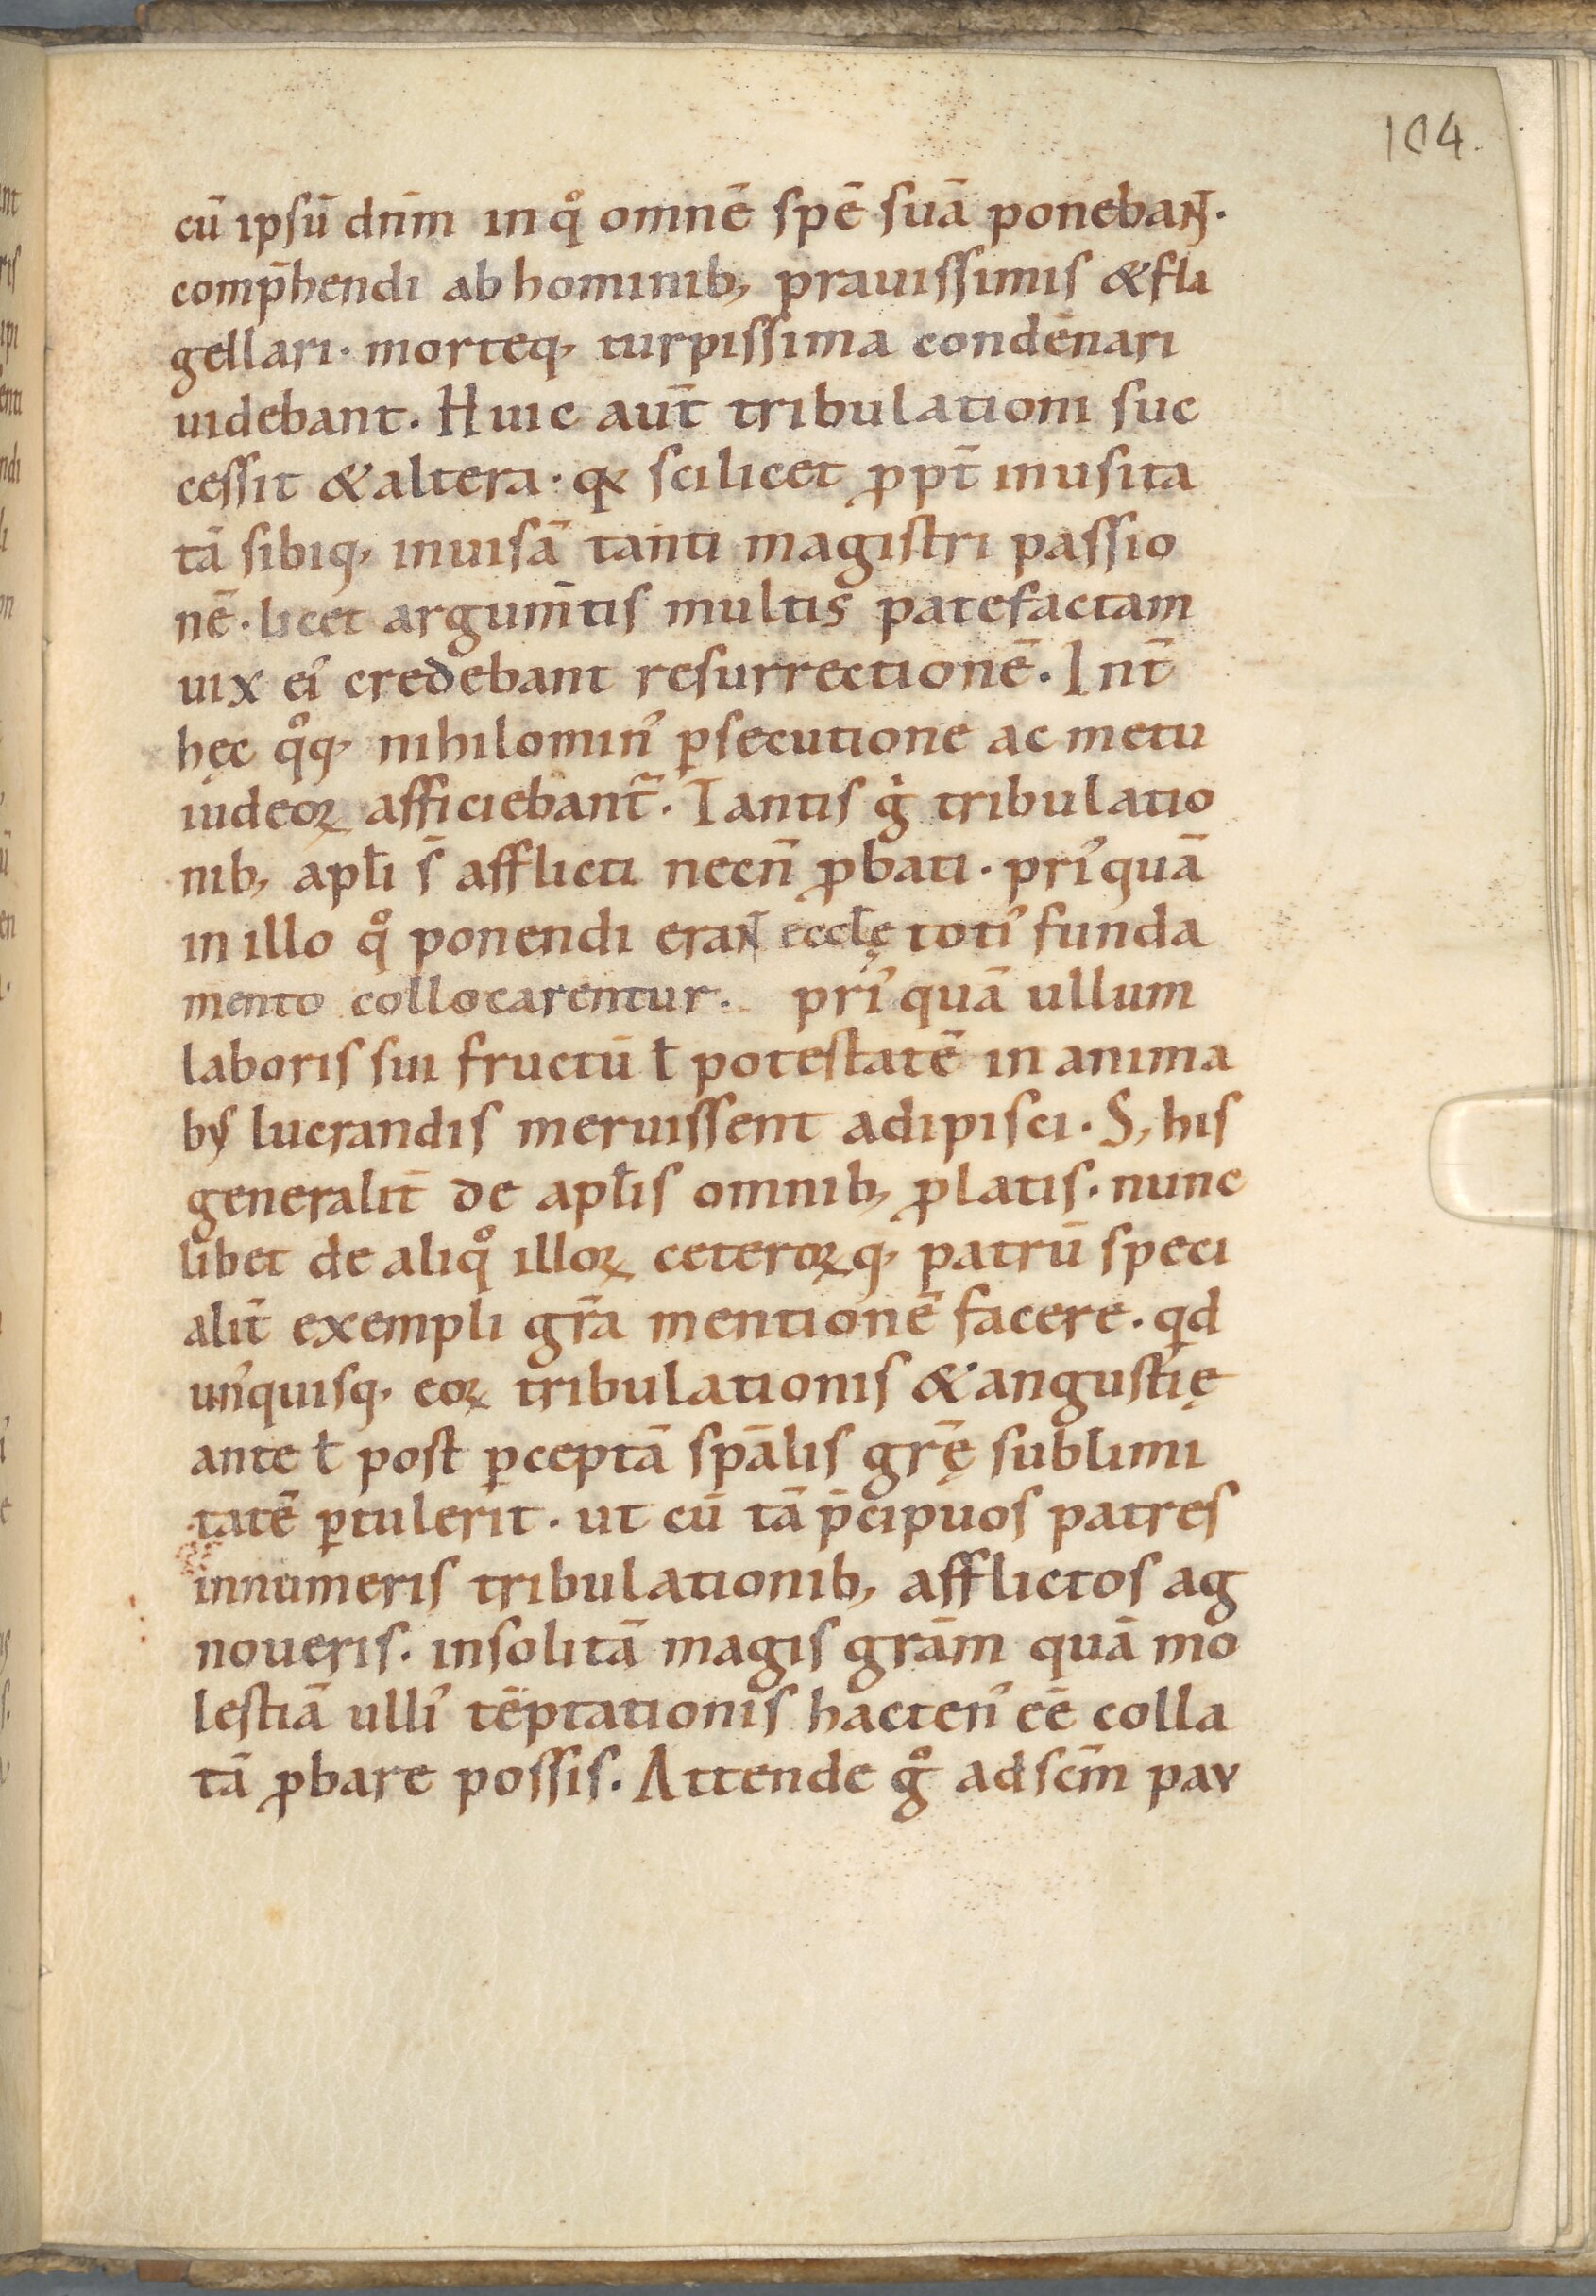 104.
cū ipsū dnm̄ in qͦ omnē spē suā poneban̄t.
comp̄hendi ab hominib; prauissimis & fla
gellari. morteq; turpissima condēnari
uidebant. Huic aut̄ tribulationi suc
cessit & altera. qꝫ scilicet ꝓpt̄ inusita
tā sibiq; inuisā tanti magistri passio
nē. licet argum̄tis multis patefactam
uix ei᾽ credebant resurrectionē. Int̄
hęc qͦq; nihilomin᾽ ꝑsecutione ac metu
iudeoꝝ afficiebant᷑. Tantis gͥ tribulatio
nib; apłi s̄ afflicti necn̄ ꝓbati. pri᾽quā
in illo qͦ ponendi eran̄t eccłę toti᾽ funda
mento collocarentur. pri᾽quā ullum
laboris sui fructū ł potestatē in anima
bus lucrandis meruissent adipisci. S; his
generalit̄ de apłis omnib; ꝓlatis. nunc
libet de aliqͦ illoꝝ ceteroꝝq; patrū speci
alit̄ exempli gr̄a mentionē facere. qd
un᾽quisq; eoꝝ tribulationis & angustię
ante ł post ꝑceptā spālis gr̄ę sublimi
tatē ꝑtulerit. ut cū tā p̄cipuos patres
innumeris tribulationib; afflictos ag
noueris. insolitā magis grām quā mo
lestiā ulli᾽ tēptationis hacten᾽ eē colla
tā ꝓbare possis. Attende gͦ ad scm̄ pau